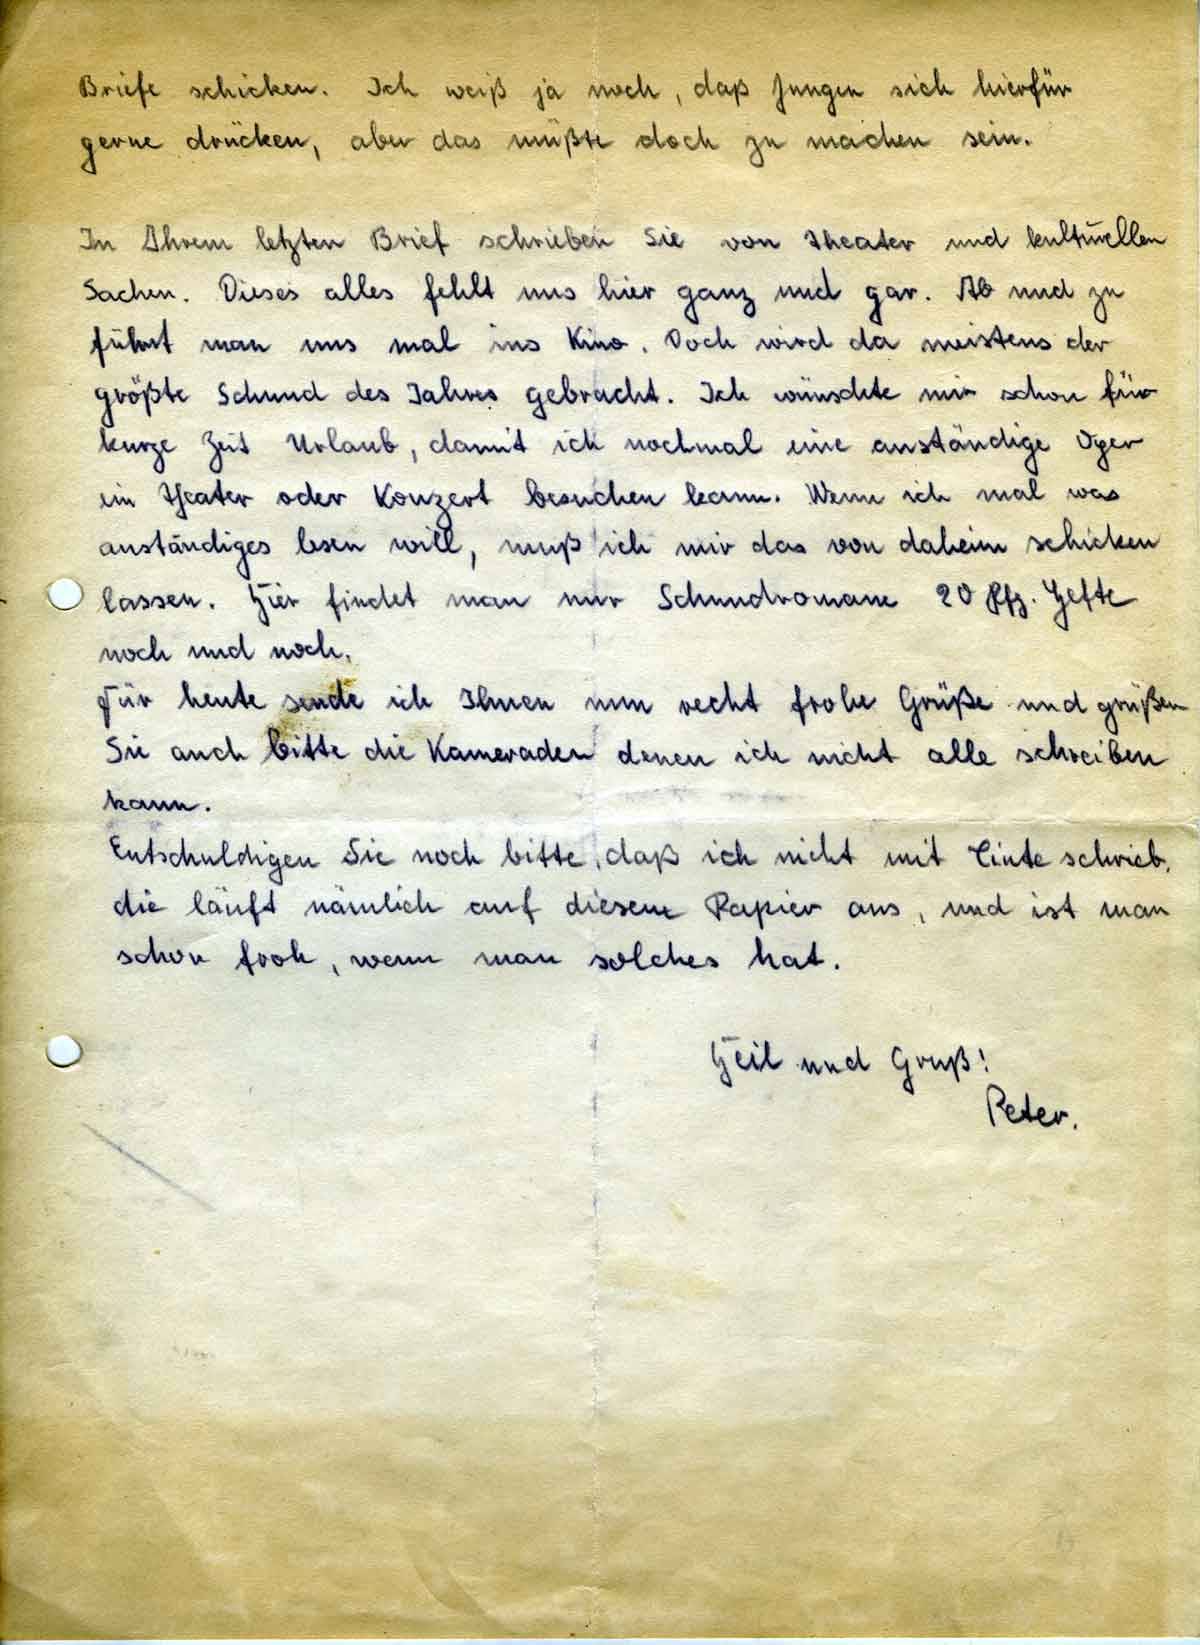 Briefe schicken. Ich weiß ja noch, daß Jungen sich hierfür
gerne drücken, aber das müßte doch zu machen sein.
In Ihrem letzten Brief schrieben Sie von Theater und kulturellen
Sachen. Dieses alles fehlt uns hier ganz und gar. Ab und zu
führt man uns mal ins Kino. Doch wird da meistens der
größte Schund des Jahres gebracht. Ich wünschte mir schon für
kurze Zeit Urlaub, damit ich nochmal eine anständige Oper
ein Theater oder Konzert besuchen kann. Wenn ich mal was
anständiges lesen will, muß ich mir das von daheim schicken
lassen. Hier findet man nur Schundromane 20 Pfg. Hefte
noch und noch.
Für heute sende ich Ihnen nun recht frohe Grüße und grüßen
Sie auch bitte die Kameraden denen ich nicht alle schreiben
kann.
Entschuldigen Sie noch bitte, daß ich nicht mit Tinte schrieb,
die läuft nämlich auf diesem Papier aus, und ist man
schon froh, wenn man solches hat.
Heil und Gruß!
Peter.